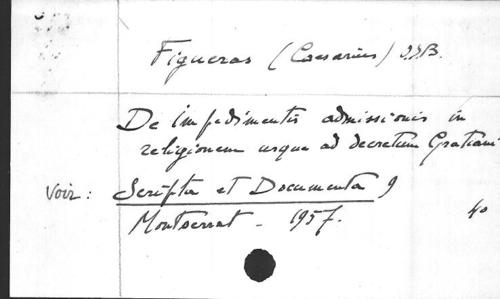 Figueras (Caesarius) O.S.B.
De impedimentis admissionis in
religionem usque ad decretum Gratiani
Voir : Scripta et Documenta 9
Montserrat - 1957.
40